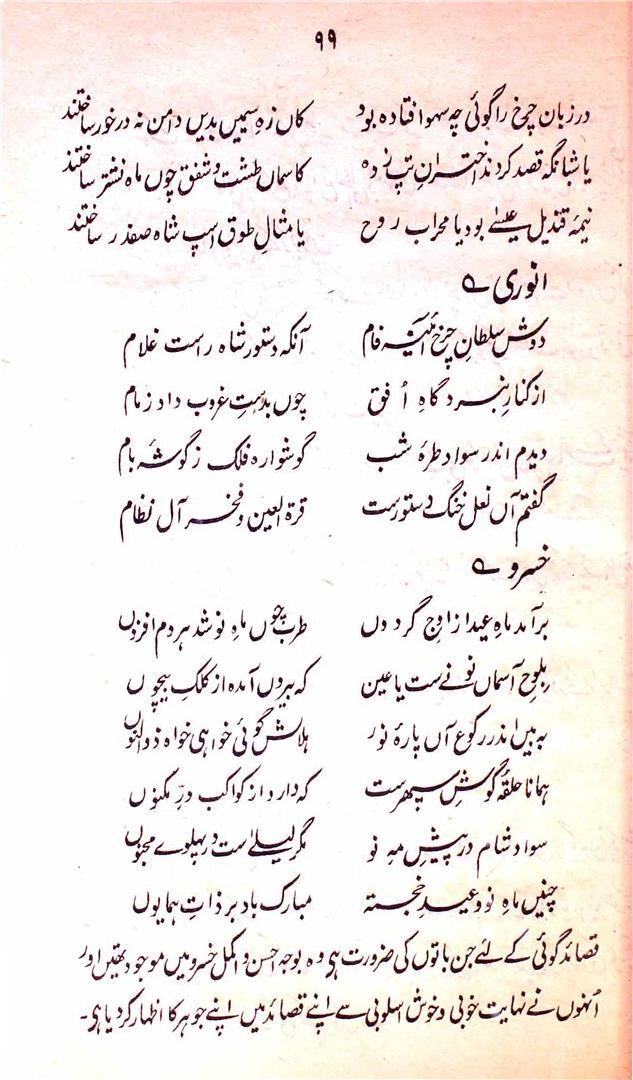 ۹۹
در زبان چرخ را گوئی چہ سہو افتادہ بود کاں زہ سیمیں بدیں دامن نہ درخور ساختند
یا شبانگہ قصد کردند اختران تپ زدہ کاسماں طشت و شفق چوں ماہ نشتر ساختند
نیمۂ قندیل عیسےٰ بود یا محراب روح یا مثالِ طوق اسپ شاہ صفدر ساختند
انوری ؎
دوش سلطانِ چرخ آئینہ فام آنکہ دستور شاہ راست غلام
از کنار نبردگاہِ اُفق چوں بدستِ غروب داد زمام
دیدم اندر سواد طرۂ شب گوشوارہ فلک ز گوشۂ بام
گفتم آں نعل خنگ دستورست قرۃ العین و فخر آل نظام
خسرو ؎
برآمد ماہِ عید از اوجِ گردوں طرب چوں ماہِ نو شد ہر دم افزوں
بلوحِ آسماں نونے ست یا عین کہ بیروں آمدہ از کلکِ بیچوں
بہ بیں اندر رکوع آں پارۂ نور ہلالش گوئی خواہی خواہ ذوالنوں
ہمانا حلقۂ گوشِ سپہرست کہ دارد از کواکب درِّ مکنوں
سواد شام در پیشِ مہِ نو مگر لیلےٰ است در پہلوے مجنوں
چنیں ماہِ نو و عیدِ خجستہ مبارک باد بر ذاتِ ہمایوں
قصائد گوئی کے لئے جن باتوں کی ضرورت ہی وہ بوجہ احسن و اکمل خسرو میں موجود تھیں اور
اُنھوں نے نہایت خوبی و خوش اسلوبی سے اپنے قصائد میں اپنے جوہر کا اظہار کر دیا ہی۔